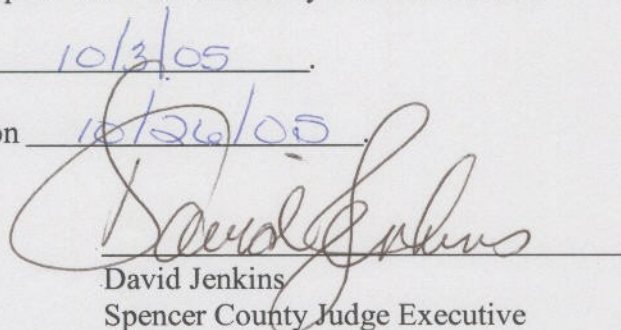 10/3/05.
on 10/26/05.
David Jenkins
David Jenkins
Spencer County Judge Executive